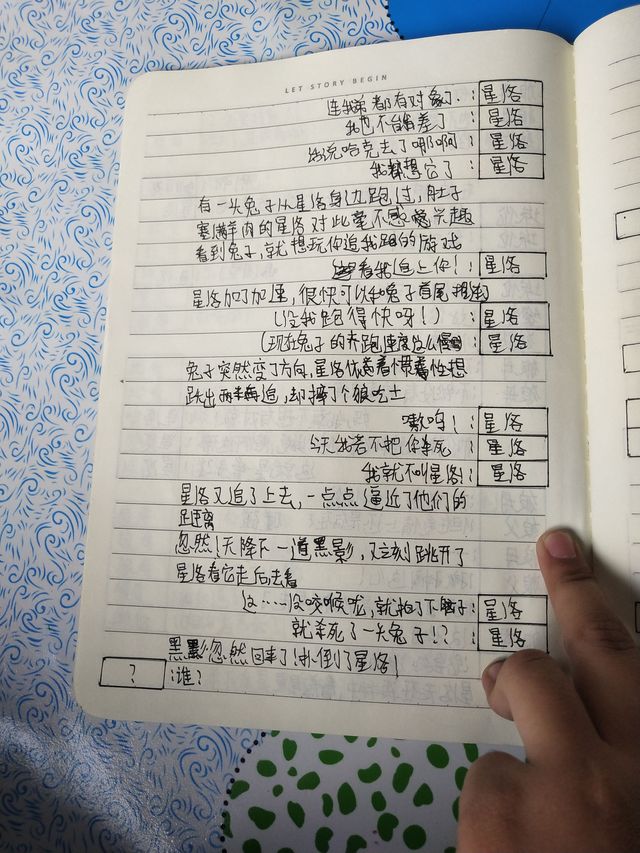 LET STORY BEGIN
连我弟都有对象了.：星洛
我也不能差了：星洛
话说哈克去了哪啊：星洛
我都想它了：星洛
有一头兔子从星洛身边跑过，肚子
塞满羊肉的星洛对此毫不感兴趣
看到兔子，就想玩你追我跑的游戏
看我追上你！：星洛
星洛加了加速，很快可以和兔子首尾相
（没我跑得快呀！）：星洛
（现在兔子的奔跑速度这么慢：星洛
兔子突然变了方向，星洛依靠着惯性想
跃出再追，却摔了个狼吃土
嗷呜！：星洛
今天我若不把你杀死：星洛
我就不叫星洛！：星洛
星洛又追了上去，一点点逼近了他们的
距离
忽然！天降下一道黑影，又立刻跳开了
星洛看它走后去看
这……没咬喉咙，就拍了下脖子：星洛
就杀死了一头兔子！？：星洛
黑影忽然回来了！扑倒了星洛！
？：谁？